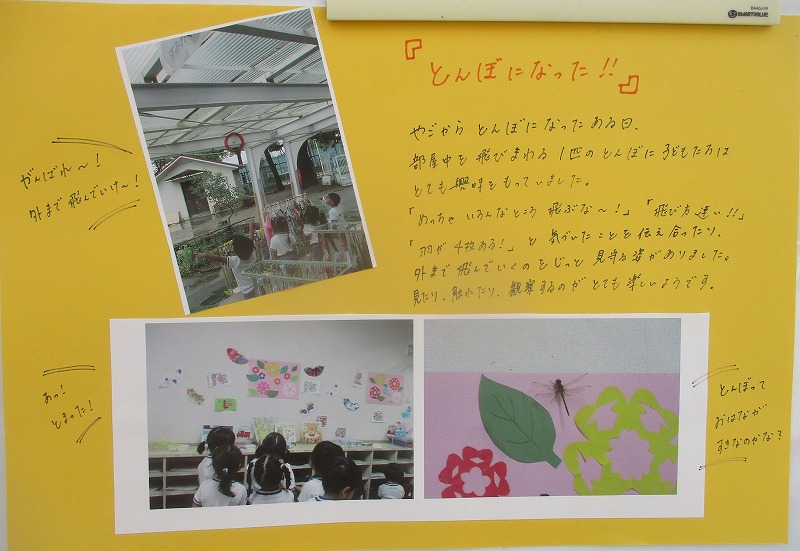 SMARTVALUE
『とんぼになった!!』
やごから とんぼになった ある日、
部屋中を 飛びまわる 1匹の とんぼに 子どもたちは
とても 興味を もっていました。
「めっちゃ いろんなところ 飛ぶな〜!」 「飛び方 速い!!」
「羽が 4枚ある!」 と 気づいたことを 伝え合ったり、
外まで 飛んでいくのを じっと 見守る 姿が ありました。
見たり、触れたり、観察するのが とても 楽しいようです。
がんばれ〜!
外まで 飛んでいけ〜!
あっ!
とまった!
とんぼって
おはなが
すきなのかな?